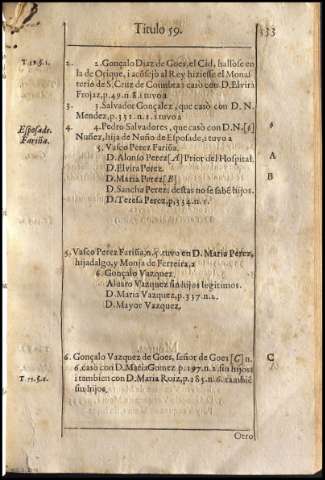 Titulo 59.
333
T 15.§.1.
2. 2. Gonçalo Diaz de Goes, el Cid, hallose en
la de Orique, i acõsejò al Rey hiziesse el Monas
terio de S. Cruz de Coimbra: casò con D. Elvira
Frojaz, p.49.n.8.i tuvo a
3. 3. Salvador Gonçalez, que casò con D. N.
Mendez, p.331.n.1.i tuvo a
Esposade.
Fariña.
4. 4. Pedro Salvadores, que casò con D. N. [§]
Nuñez, hija de Nuño de Esposade, i tuvo a
5. Vasco Perez Fariña.
D. Alonso Perez [A] Prior del Hospital.
A
D. Elvira Perez.
D. Maria Perez [B]
B
D. Sancha Perez: destas no se sabẽ hijos.
D. Teresa Perez, p.334.n.1.
5. Vasco Perez Fariña, n.5. tuvo en D. Maria Perez,
hijadalgo, y Monja de Ferreira, a
6. Gonçalo Vazquez.
Alvaro Vazquez sin hijos legitimos.
D. Maria Vazquez, p.337.n.2.
D. Mayor Vazquez.
6. Gonçalo Vazquez de Goes, señor de Goes [C] n.
C
6. casò con D. Maria Gomez p.197.n.2. sin hijos
i tambien con D. Maria Roiz, p.285.n.6. tambiẽ
T 15.§.2.
sin hijos.
Otro